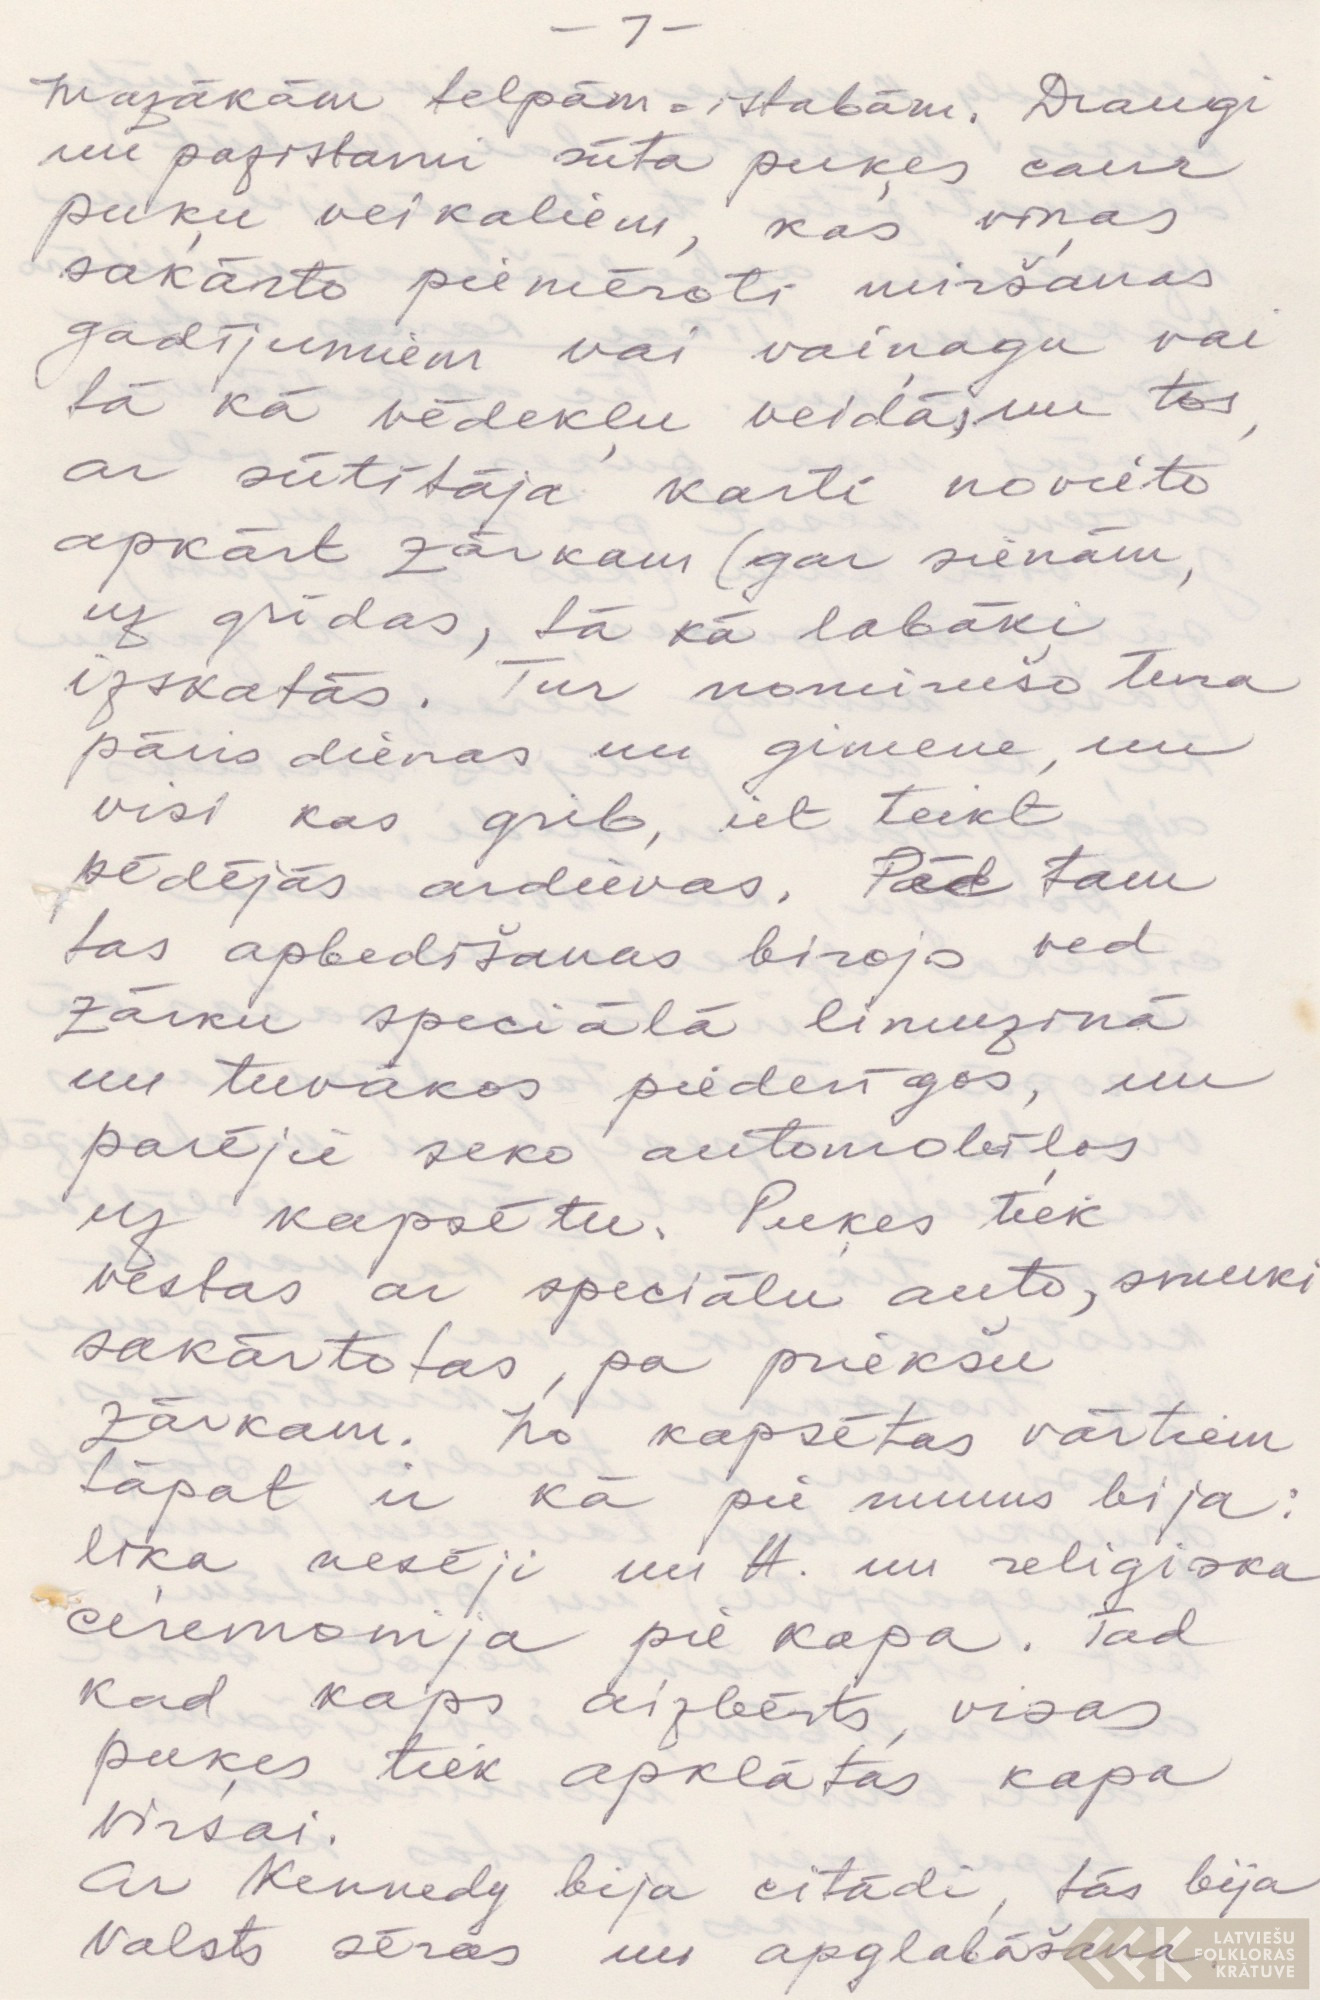 - 7 -
mazākām telpām - istabām. Draugi
un pazistami sūta puķes caur
puķu veikaliem, kas viņas
sakārto piemēroti miršanas
gadījumiem vai vaiņagu vai
tā kā vēdekļu veidā, un tos,
ar sūtītāja karti novieto
apkārt zārkam (gar sienām,
uz grīdas, tā kā labāki
izskatās. Tur nomirušo tura
pāris dienas un gimene, un
visi kas grib, iet teikt
pēdējās ardievas. Pēc tam
tas apbedišanas birojs ved
zārku speciālā limuzinā
un tuvākos piederīgos, un
parējie seko automobiļos
uz kapsētu. Puķes tiek
vestas ar speciālu auto, smuki
sakārtotas, pa priekšu
zārkam. No kapsētas vārtiem
tāpat ir kā pie mums bija:
liķa nesēji un t.t. un religiska
ceremonija pie kapa. Tad
kad kaps aizbērts, visas
puķes tiek apklātas kapa
virsai.
Ar Kennedy bija citādi, tās bija
Valsts sēras un apglabāšana.
LATVIEŠU
FOLKLORAS
KRĀTUVE